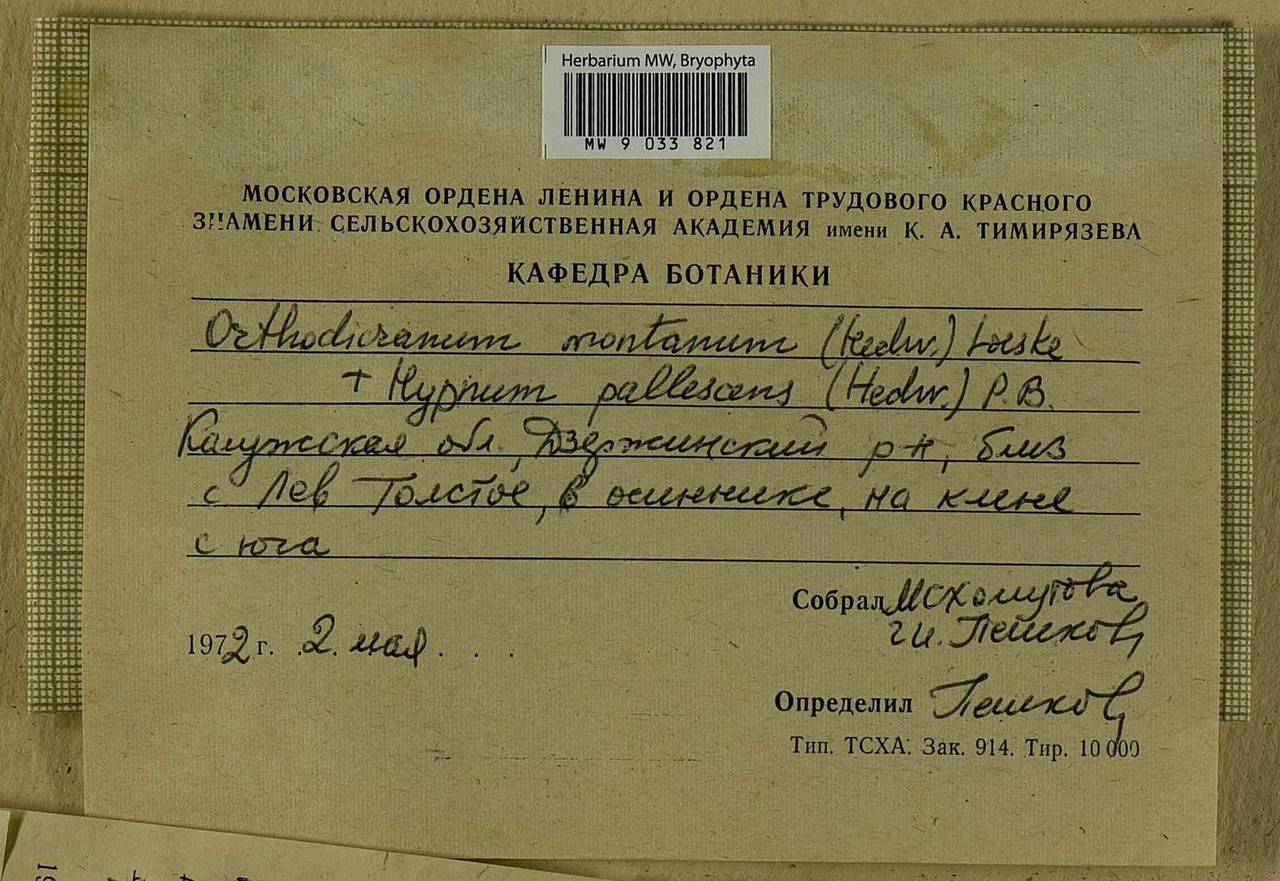 Herbarium MW, Bryophyta
MW 9 033 821
МОСКОВСКАЯ ОРДЕНА ЛЕНИНА И ОРДЕНА ТРУДОВОГО КРАСНОГО
ЗНАМЕНИ СЕЛЬСКОХОЗЯЙСТВЕННАЯ АКАДЕМИЯ имени К. А. ТИМИРЯЗЕВА
КАФЕДРА БОТАНИКИ
Orthodicranum montanum (Hedw.) Loeske
+ Hypnum pallescens (Hedw.) P.B.
Калужская обл., Дзержинский р-н, близ
с Лев Толстое, в осиннике, на клене
с юга
Собрал МСХомутова
Г И. Пешков
1972 г. 2. мая . . .
Определил Пешков
Тип. ТСХА. Зак. 914. Тир. 10 000